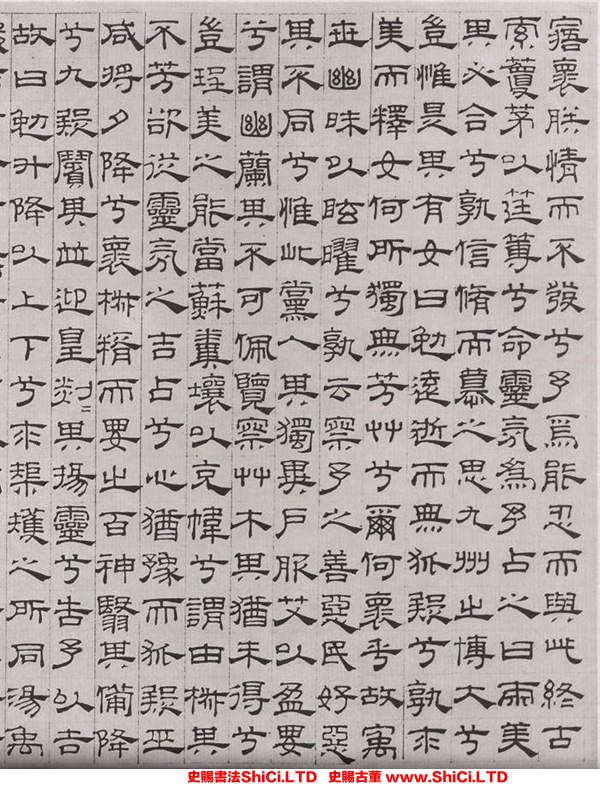 寤褱朕情而不發兮予焉能忍而與此終古
索藑茅以筳篿兮命靈氛為予占之曰兩美
其必合兮孰信脩而慕之思九州之博大兮
豈惟是其有女曰勉遠逝而無狐疑兮孰求
美而釋女何所獨無芳艸兮爾何褱乎故㝢
世幽昧以眩曜兮孰云察予之善惡民好惡
其不同兮惟此黨人其獨異戶服艾以盈要
兮謂幽蘭其不可佩覽察艸木其猶未得兮
豈珵美之能當蘇糞壤以充幃兮謂申椒其
不芳欲從靈氛之吉占兮心猶豫而狐疑巫
咸將夕降兮褱椒糈而要之百神翳其備降
兮九疑繽其並迎皇剡=其揚靈兮告予以吉
故曰勉升降以上下兮求榘矱之所同湯禹
史賜書法ShiCi.LTD 史賜古董 www.ShiCi.LTD